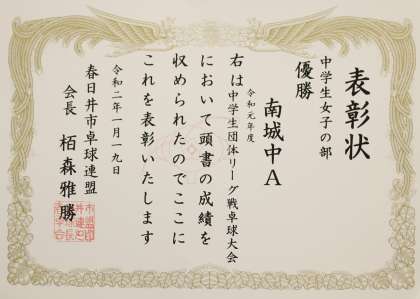 表彰状
中学生女子の部
優勝
南城中A
令和元年度
右は中学生団体リーグ戦卓球大会
において頭書の成績を
収められたのでここに
これを表彰いたします
令和二年一月一九日
春日井市卓球連盟
会長 栢森雅勝